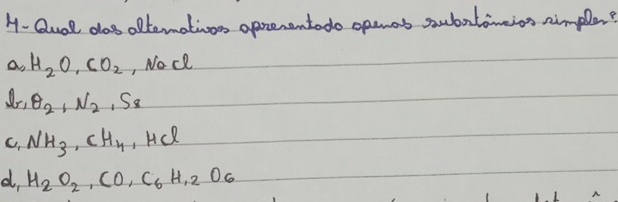 4-Qual das alternativas apresentado apenas substâncias simples?
a, H₂O, CO₂, NaCl
b, O₂, N₂, S₈
c, NH₃, CH₄, HCl
d, H₂O₂, CO, C₆H₁₂O₆